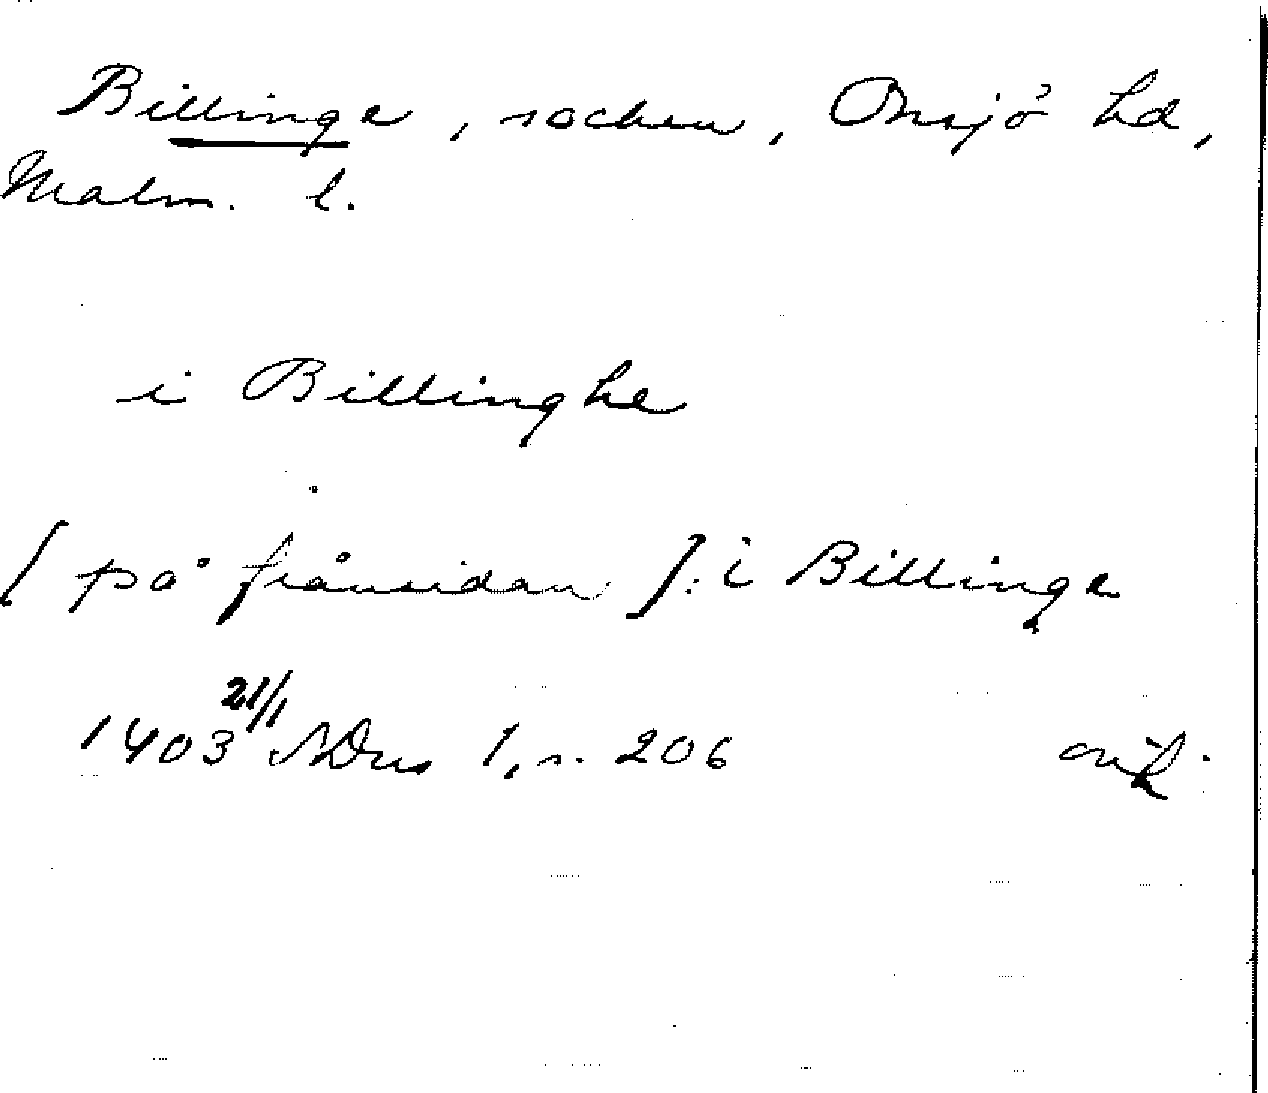 Billinge, socken, Onsjö hd,
Malm. l.
i Billinghe
[på frånsidan]: i Billinge
1403 21/1 NDns 1, s. 206